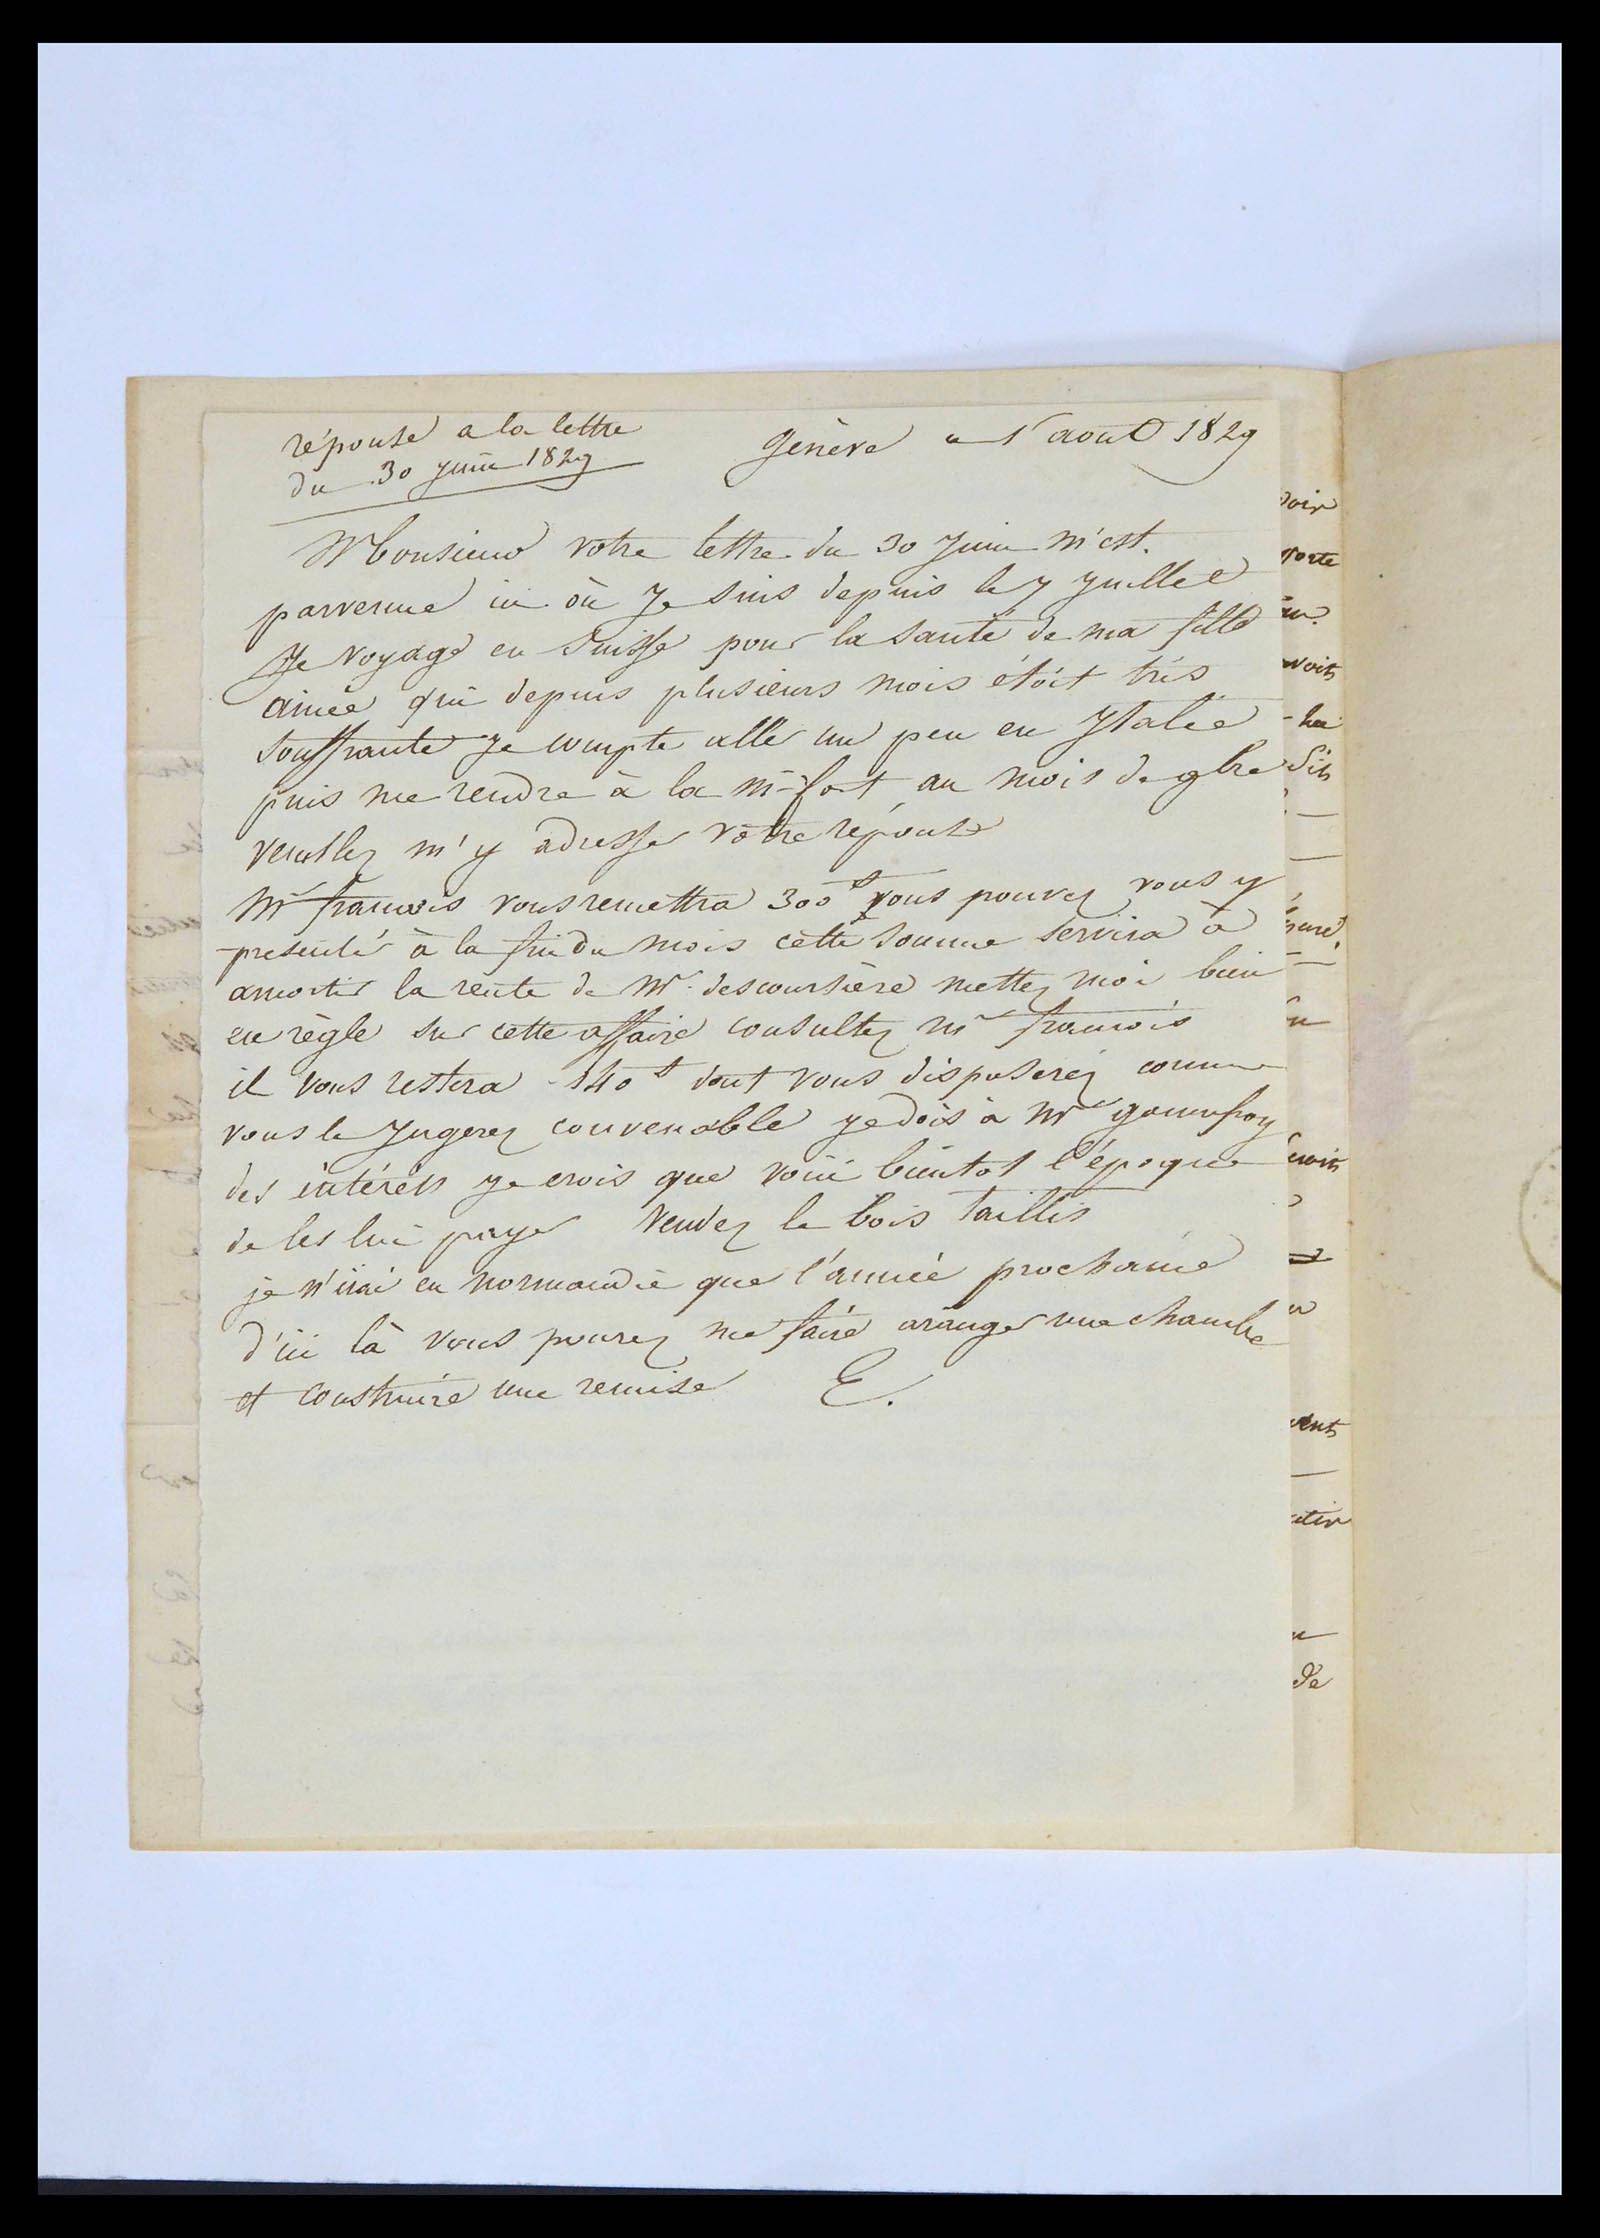 réponse a la lettre
du 30 juin 1829
Genève a 1 aout 1829
Monsieur votre lettre du 30 Juin m'est
parvenue ici où Je suis depuis le 7 yuillet
Je voyage en Suisse pour la santé de ma fille
ainée qui depuis plusieurs mois étoit très
souffrante Je compte aller un peu en Ytalie
puis me rendre à la m-fort au mois de 9bre
veuillez m'y adresser votre réponse
Mr francois vous remettra 300 vous pouvez vous y
presenter à la fin du mois cette somme servira à
amortir la rente de Mr descoursière mettez moi bien
en règle sur cette affaire consultez Mr francois
il vous restera 140 dont vous disposerez comme
vous le Jugerez convenable ye dois à Mr
des intérêts ye crois que voici bientot l'époque
de les lui payer vendez le bois taillis
je n'irai en normandie que l'année prochaine
d'ici là vous pourez me faire aranger une chambre
et construire une remise E.
voir
porte
voit
dit
vent
de